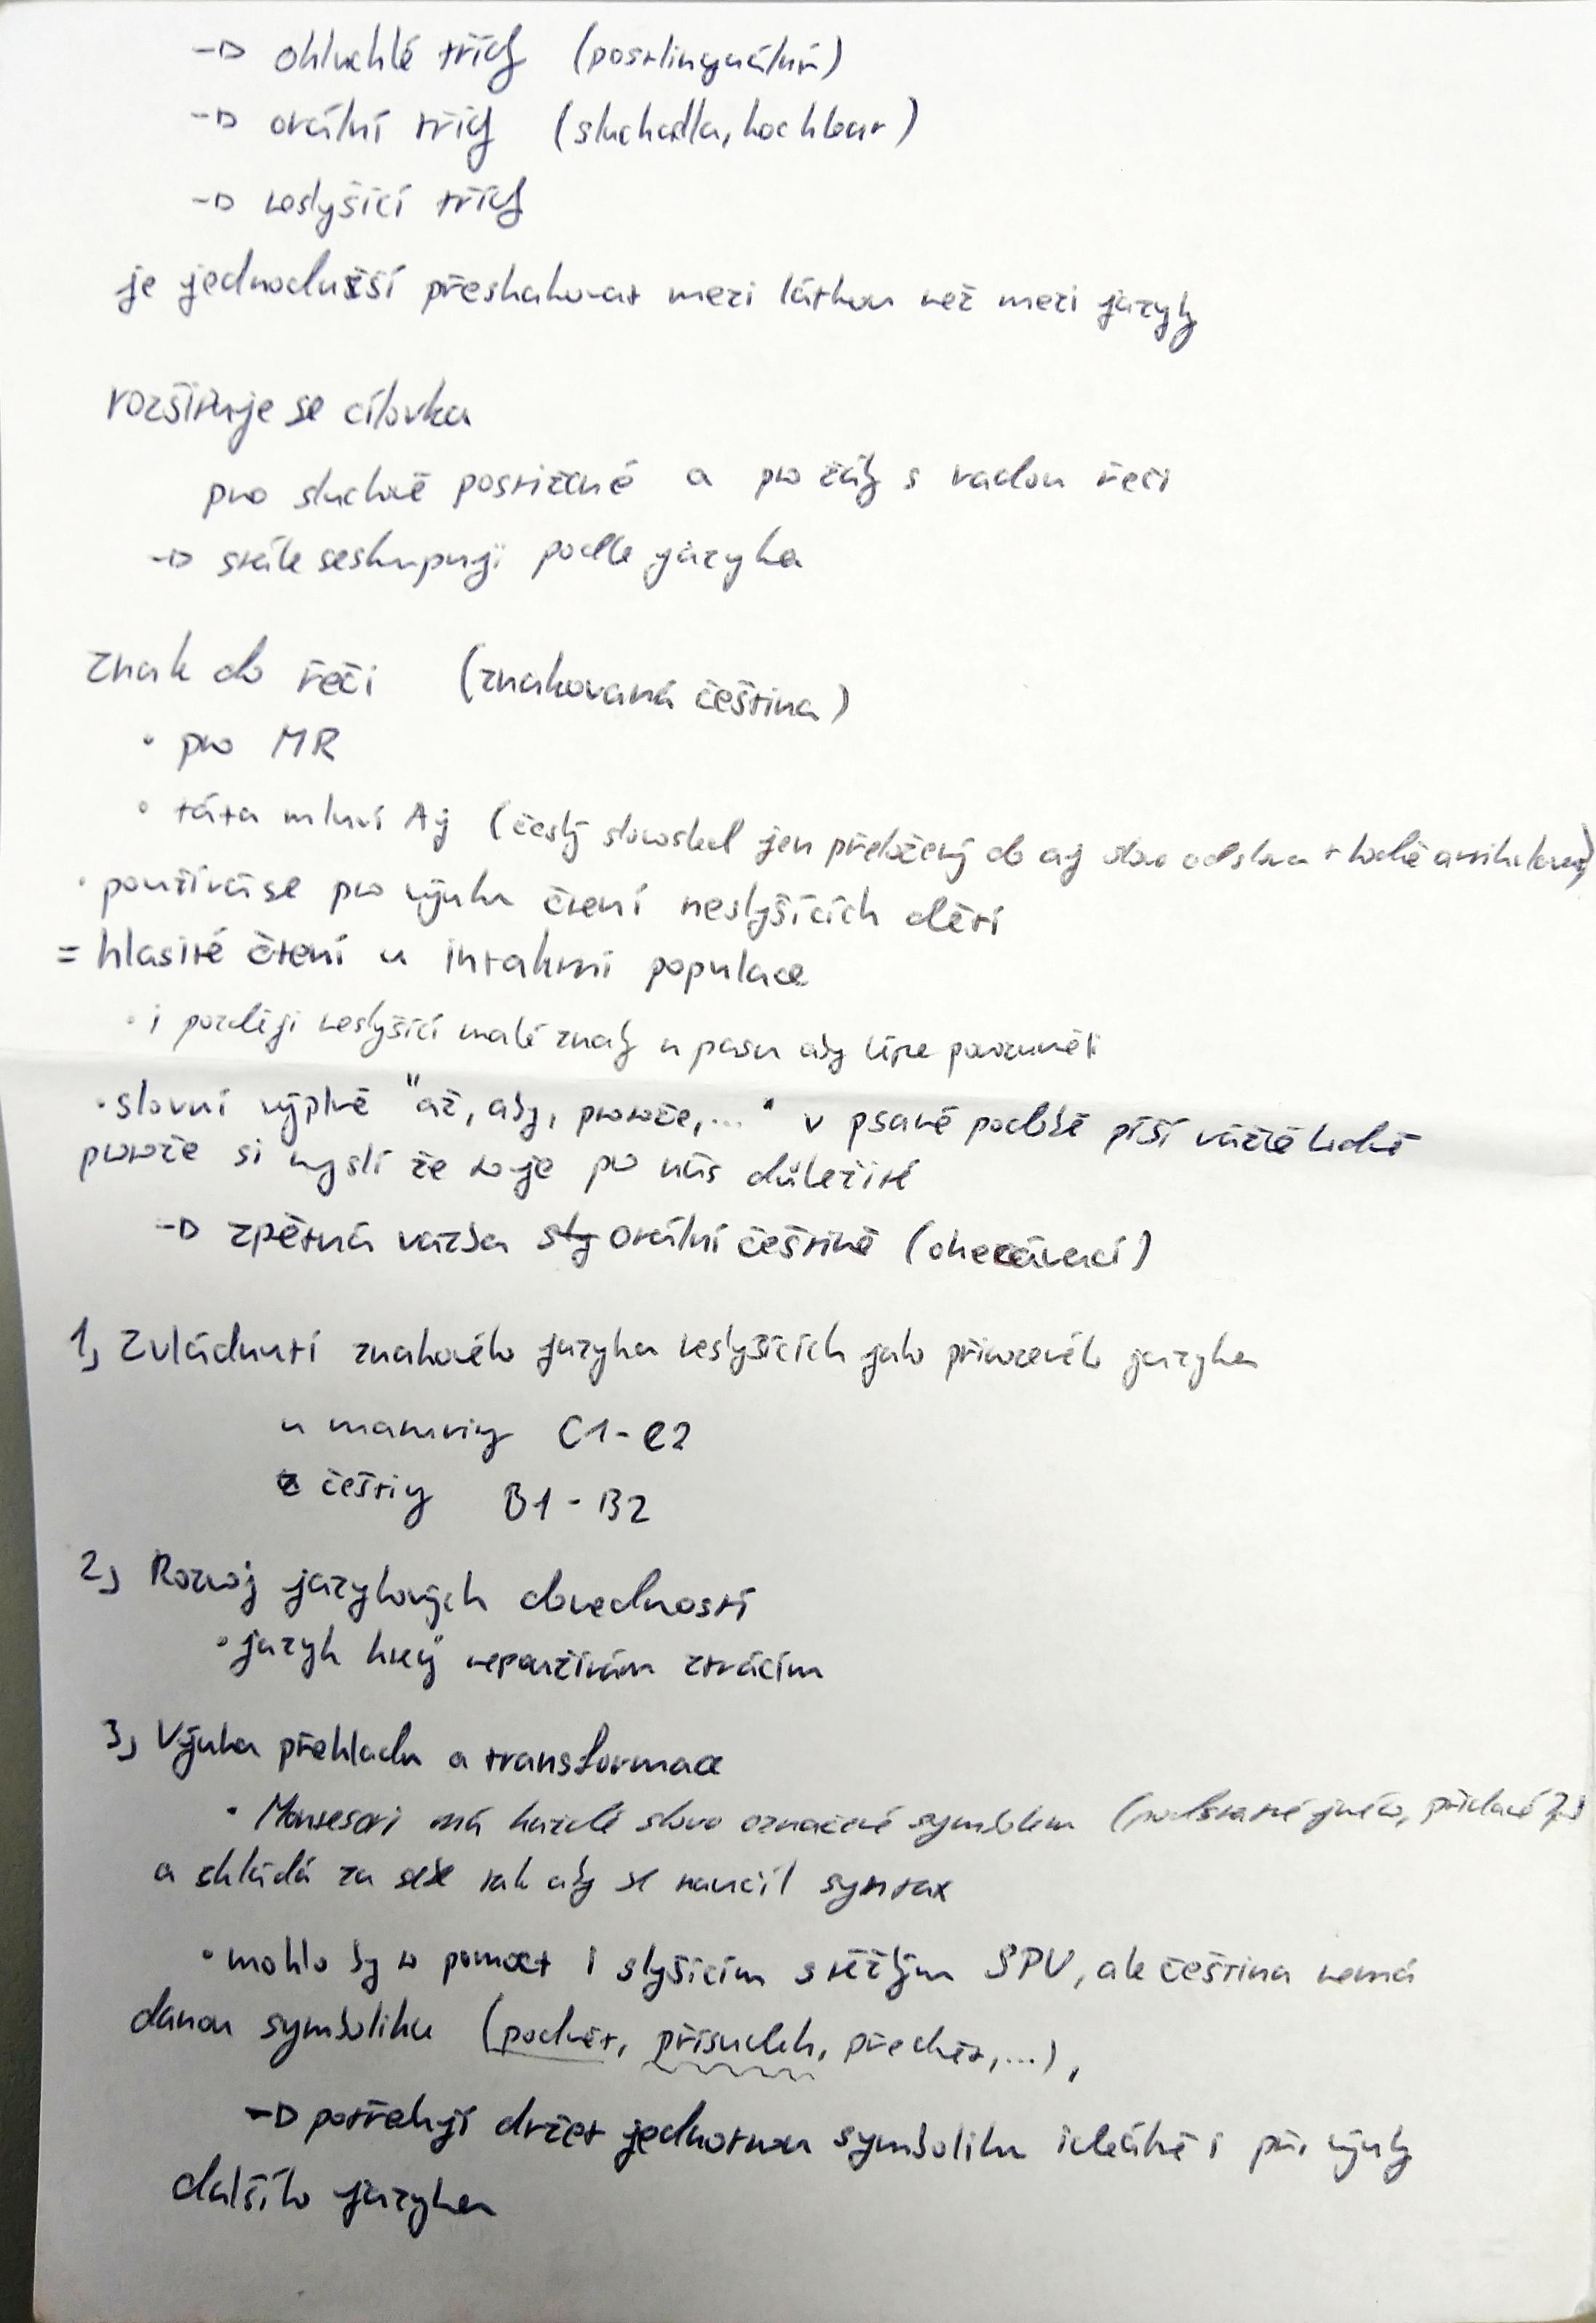 → ohluchlé třídy (postlinguální)
→ orální třídy (sluchadla, kochlear)
→ neslyšící třídy
je jednodušší přeskakovat mezi látkou než mezi jazyky
rozšiřuje se cílovka
pro sluchově postižené a pro žáky s vadou řeči
→ stále seskupují podle jazyka
znak do řeči (znakovaná čeština)
• pro MR
• táta mluví Aj (český slovosled jen přeložený do aj slovo od slova + hodně
• používá se pro výuku čtení neslyšících dětí
= hlasité čtení u intaktní populace
• i později neslyšící malé znaky u pasu aby lépe porozuměli
• slovní výplně "až, aby, protože,..." v psané podobě píší
protože si myslí že to je pro nás důležité
→ zpětná vazba orální češtině (
1, Zvládnutí znakového jazyka neslyšících jako přirozeného jazyka
u maturity C1-C2
z češtiny B1-B2
2, Rozvoj jazykových dovedností
• jazyk který nepoužívám ztrácím
3, Výuka překladu a transformace
• Montesori má každé slovo označené symbolem (podstatné jméno, přídavné
a skládá za sebe tak aby se naučil syntax
• mohlo by to pomoct i slyšícím s těžkým SPU, ale čeština nemá
danou symboliku (podmět, přísudek, předmět,...),
→ potřebují držet jednotnou symboliku ideálně i při výuky
dalšího jazyka